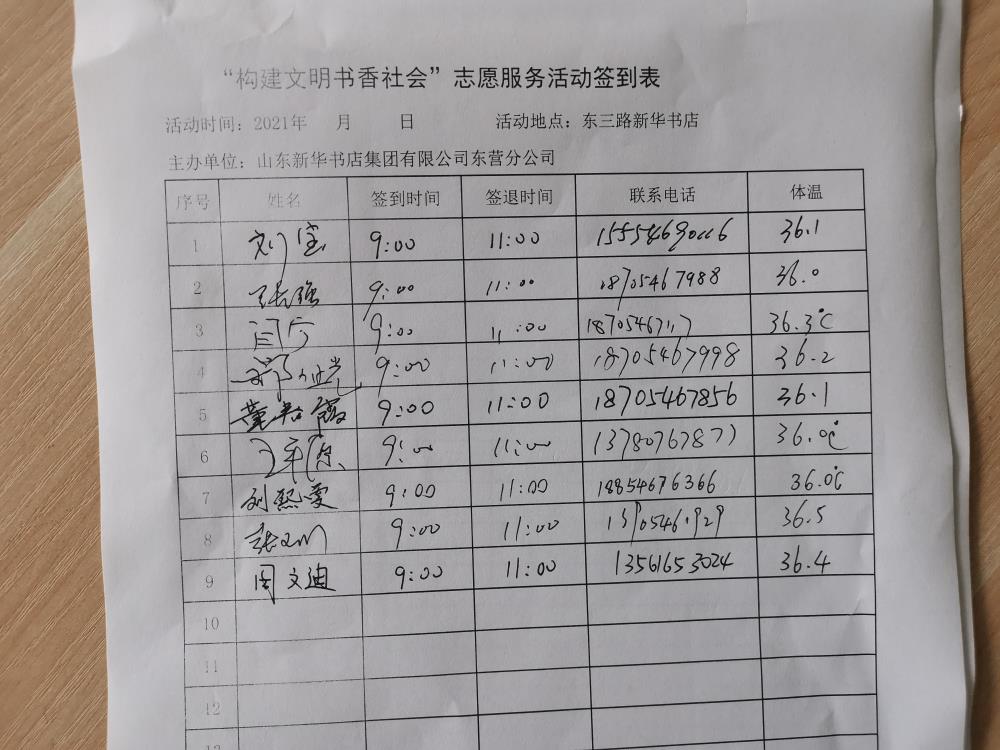 “构建文明书香社会”志愿服务活动签到表
活动时间：2021年 月 日 活动地点：东三路新华书店
主办单位：山东新华书店集团有限公司东营分公司
序号 姓名 签到时间 签退时间 联系电话 体温
1 9:00 11:00 36.1
2 张强 9:00 11:00 18705467988 36.0
3 9:00 11:00 36.3℃
4 9:00 11:00 18705467998 36.2
5 9:00 11:00 18705467856 36.1
6 9:00 11:00 13780767877 36.0℃
7 刘熙雯 9:00 11:00 18854676366 36.0℃
8 9:00 11:00 36.5
9 周文迪 9:00 11:00 13561653024 36.4
10
11
12
13